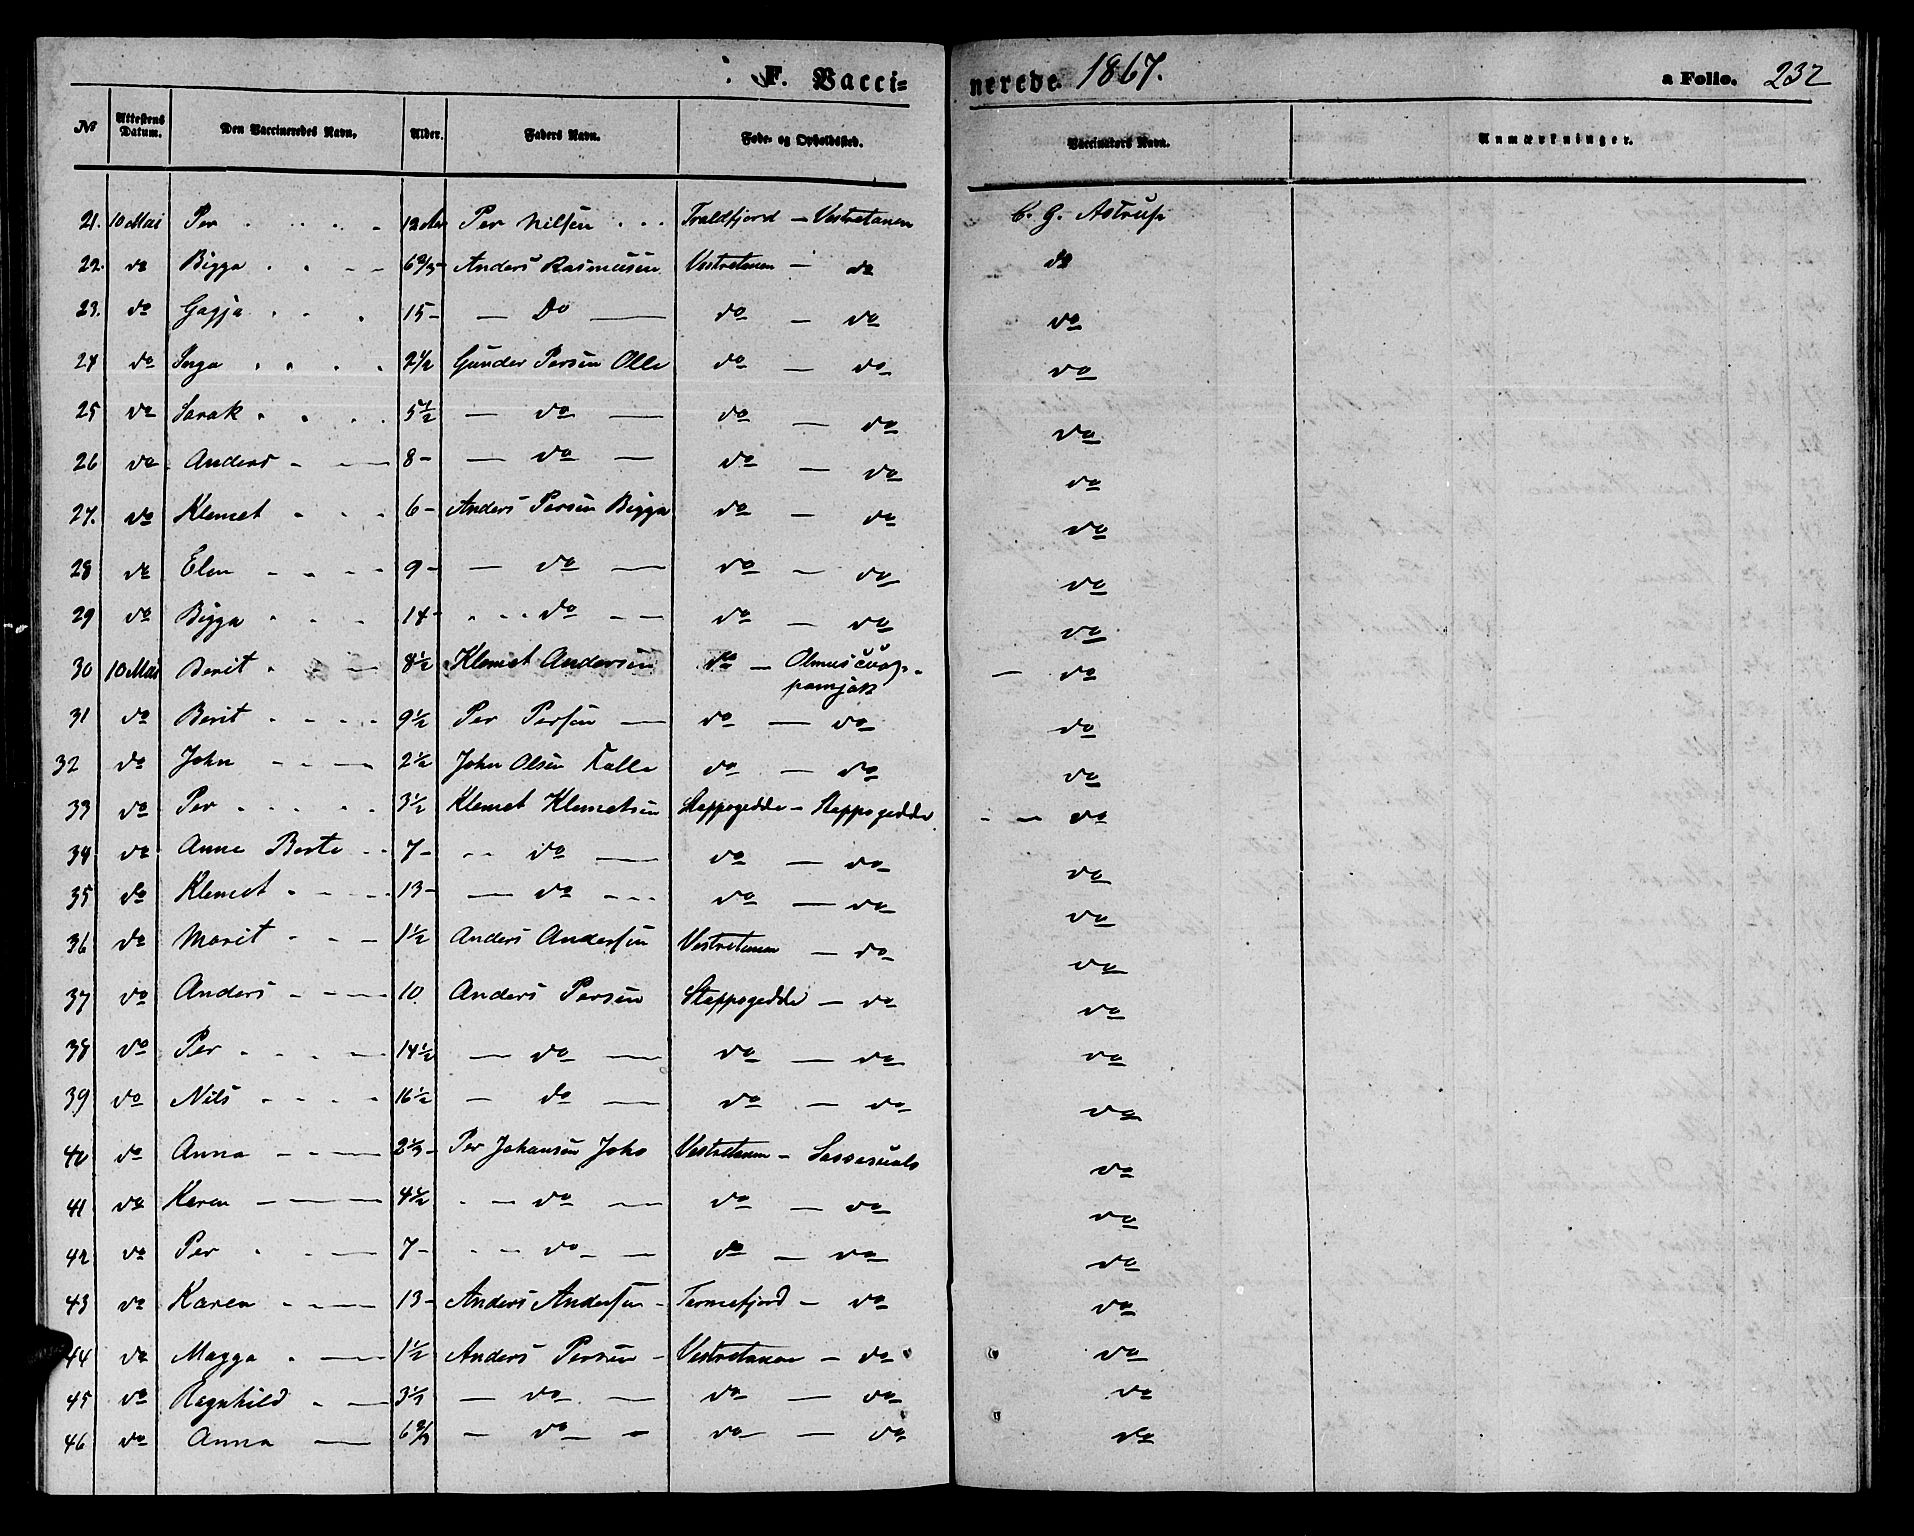 F. Vacci- nerede. 1867. a Folio. 232
No Attestens Datum. Den Vaccineredes Navn. Alder. Faders Navn. Føde- og Opholdssted. Vaccinators Navn. Anmærkninger.
21. 10 Mai Per 12 Aar Per Nilsen Traldfjord - Vestretanen C. G. Astrup
22. do Bigga 6 2/3 - Anders Rasmusen Vestretanen - do do
23. do Gagja 15 - — Do — do — do do
24 do Inga 2 1/2 Gunder Persen Olle do — do do
25 do Sarak 5 1/2 — do — do — do do
26 do Anders 8 - — do — do — do do
27. do Klemet 6 - Anders Persen Bigga do — do do
28 do Elen 9 - — do — do — do do
29 do Bigga 14 - do — do — do do
30 10 Mai Berit 8 1/2 Klemet Andersen do — do
pamjok
31 do Berit 9 1/2 Per Persen — do — do do
32 do John 2 1/2 John Olsen Kalle do — do do
33 do Per 3 1/2 Klemet Klemetsen Stappogedde - Stappogedde do
34 do Anne Berte 7 - do — do — do do
35 do Klemet 13 - — do do — do do
36 do Marit 1 1/2 Anders Andersen Vestretanen — do do
37 do Anders 10 Anders Persen Stappogedde — do do
38 do Per 14 1/2 — do — do — do do
39 do Nils 16 1/2 — do — do — do do
40 do Anna 2 1/3 - Per Johansen Joks Vestretanen - do
41 do Karen 4 1/2 do — do — do do
42 do Per 7 - do — do — do do
43 do Karen 13 - Anders Andersen - Termefjord - do do
44 do Magga 1 1/2 Anders Persen - Vestretanen - do do
45 do Ragnhild 3 1/2 — do — do — do do
46 do Anna 6 2/3 — do — do — do do